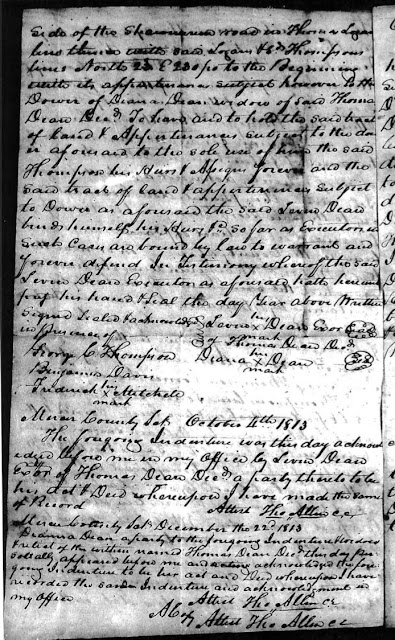 side of the Shawnee road in Thomas Logan
line thence with said Logan & Thompsons
lines North 23 E 230 po to the Beginning
with its appertenance subject however to the
Dower of Diana Dean widow of said Thomas
Dean Decd To have and to hold the said tract
of Land & Appertenances subject to the dow
er aforesaid to the sole use of him the said
Thompson his Heirs & Assigns forever and the
said tract of land & appertenances subject
to Dower as aforesaid the said Levin Dean
binds himself his Heirs &c so far as Executors in
such Cases are bound by law to warrant and
forever defend In Testimony whereof the said
Levin Dean Executor as aforesaid hath hereunto
set his hand & Seal the day & Year above Written
Signed Sealed & acknowledgd Levin his x mark Dean Exor Seal
in presence of of Thomas Dean Decd
George C Thompson Diana her x mark Dean Seal
Benjamin Davis
Frederick his x mark Mitchell
Mercer County Sct October 4th 1813
The foregoing Indenture was this day acknowl
edged before me in my Office by Levin Dean
Exor of Thomas Dean Decd a party thereto to be
his act & Deed whereupon I have made the same
of Record
Attest Tho Allin CC
Mercer County Sct December the 22d 1813
Dianna Dean a party to the foregoing Indenture Widow &
relict of the within named Thomas Dean Decd this day per
sonally appeared before me and acknowledged the fore
going Indenture to be her act and Deed whereupon I have
recorded the same Indenture and acknowledgment in
my Office
Attest Tho Allin CC
A Copy Attest Tho Allin CC